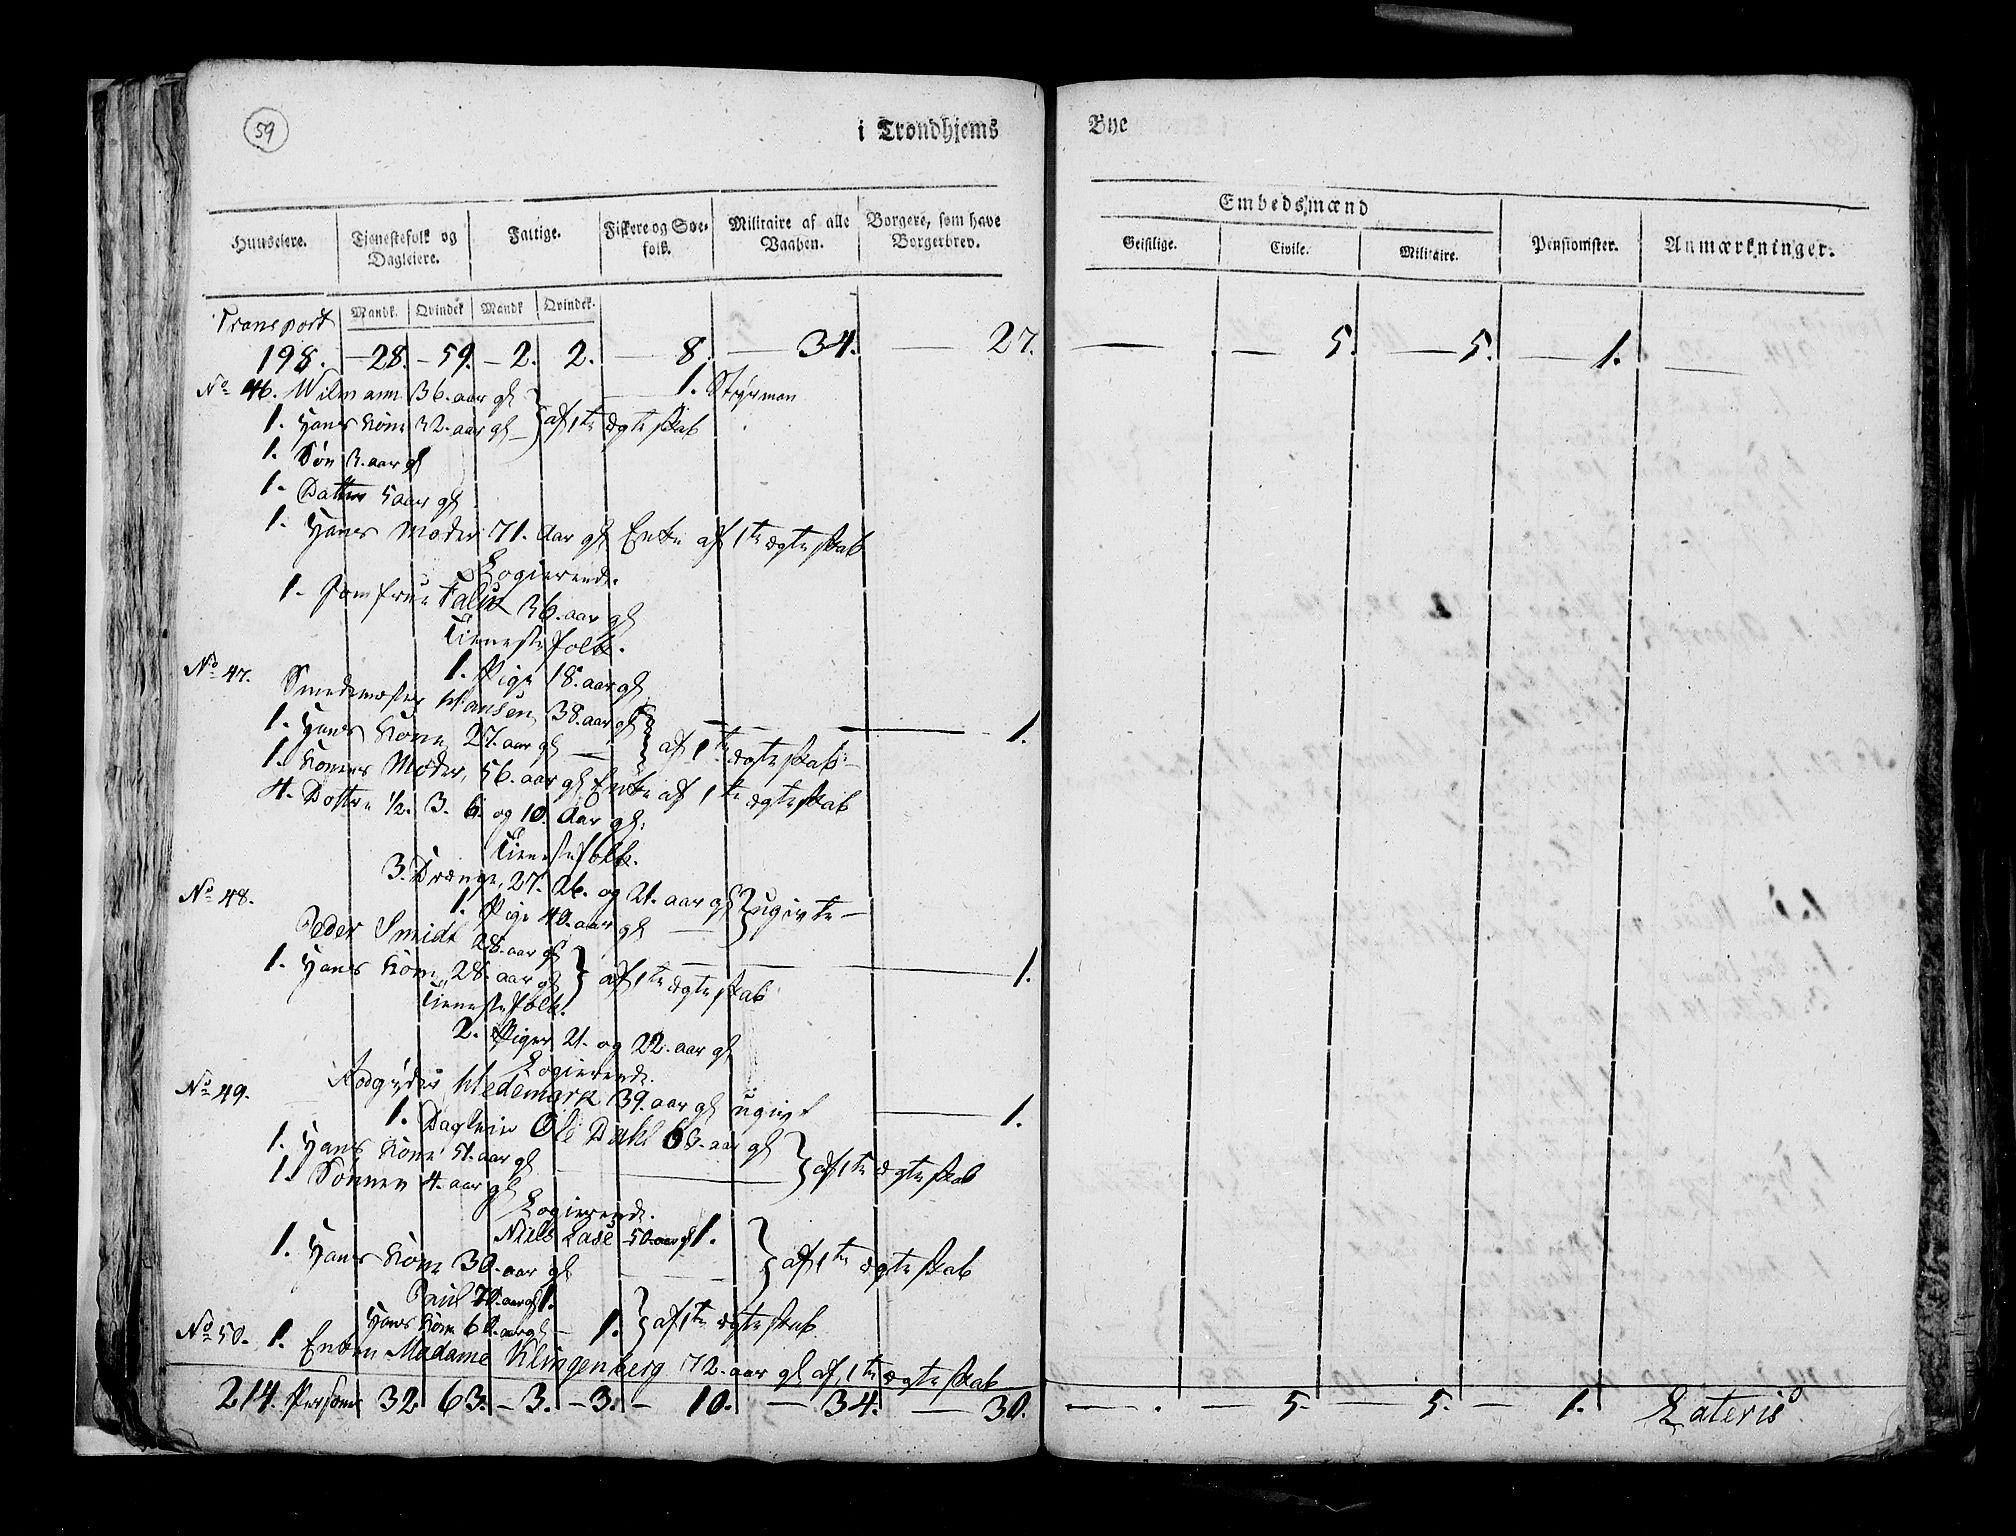 59
i Trondhjems Bye
Huuseiere. Tjenestefolk og Dagleiere. Fattige. Fiskere og Søefolk. Militaire af alle Vaaben. Borgere, som have Borgerbrev. Embedsmænd Pensionister. Anmærkninger.
Geistlige. Civile. Militaire.
Mandk. Qvindek. Mandk. Qvindek.
Transport
198. — 28. — 59. — 2. 2. — 8. — 34. — 27. — . — 5. — 5. — 1. —
No 46. Wilmann 36. aar gl — 1. Styrman
1. Hans Kone 32. aar gl — } af 1te ægteskab
1. Søn 3. aar gl
1. Datter 5 aar gl
1. Hans Moder 71. Aar gl Enke af 1te ægteskab
Logierende.
1. Jomfrue Falck 36. aar gl
Tienestefolk.
1. Pige 18. aar gl
No 47. Smedemester Hansen 38. aar gl — 1.
1. Hans Kone 27. aar gl — } af 1te ægteskab —
1. Konens Moder, 56. aar gl Enke af 1te ægteskab
4. Dottre 1/2. 3. 6. og 10. Aar gl.
Tienestefolk.
3. Drenge, 27. 26. og 21. aar gl } ugivte —
1. Pige 40. aar gl —
No 48. Peder Smidt 28. aar gl — 1.
1. Hans Kone 28. aar gl } af 1te ægteskab
Tienestefolk.
2. Piger 21. og 22. aar gl
Logierende.
Hedemark 39. aar gl ugivt — 1.
No 49. 1. Dagleier Ole Dahl 63. aar gl
1. Hans Kone 51. aar gl — } af 1te ægteskab
1. Sønnen 4. aar gl
Logierende.
Niels Lase 50. aar gl 1.
1. Hans Kone 30. aar gl — } af 1te ægteskab
Paul 70. aar gl 1.
Hans Kone 60. aar gl — 1. } af 1te ægteskab
No 50. 1. Enken Madame Klingenberg 72. aar gl af 1te ægteskab
214. Personer 32. 63. — 3. — 3. — 10. — 34. — 30. — . — 5. — 5. — 1. Lateris